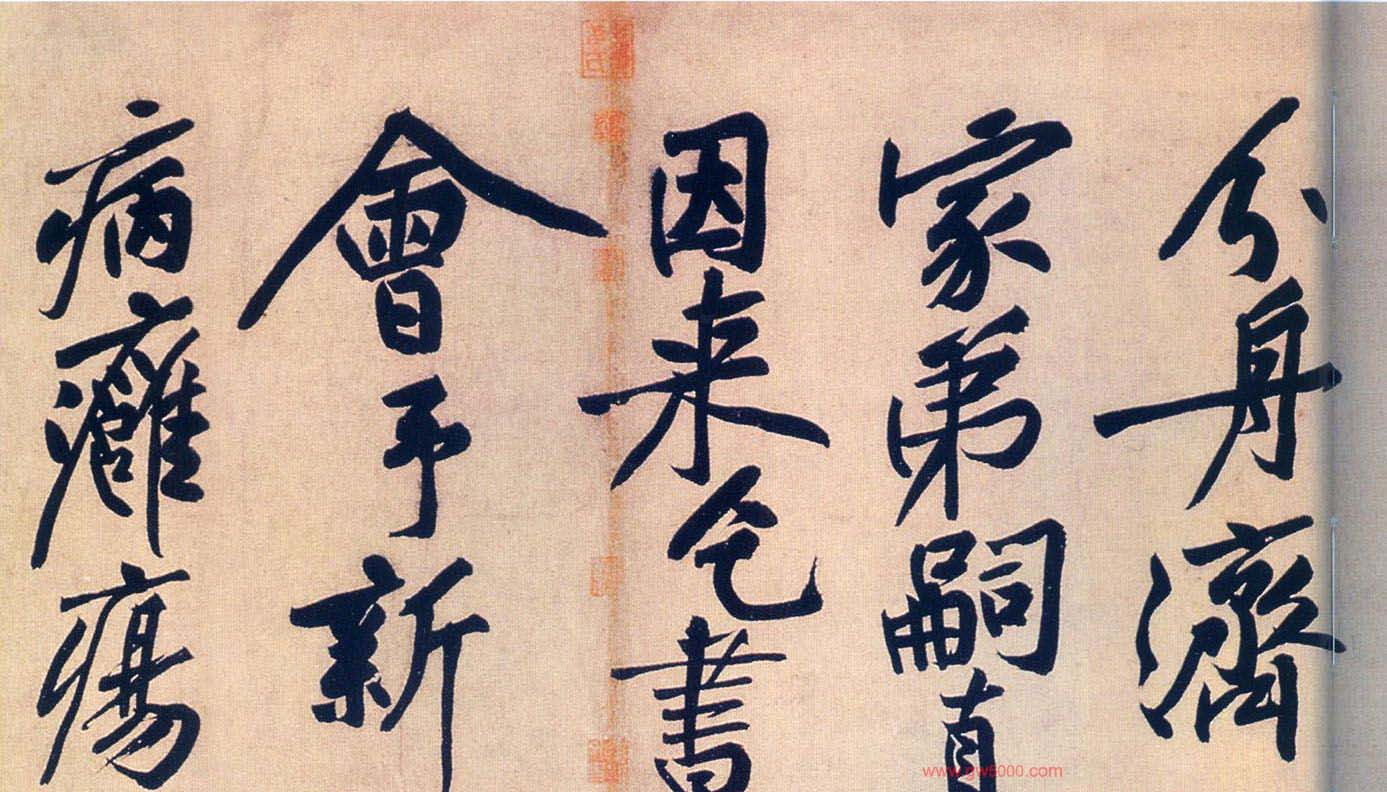 分身濟
家弟嗣直
因来乞書
會予新
病癰瘍
www.gw5000.com